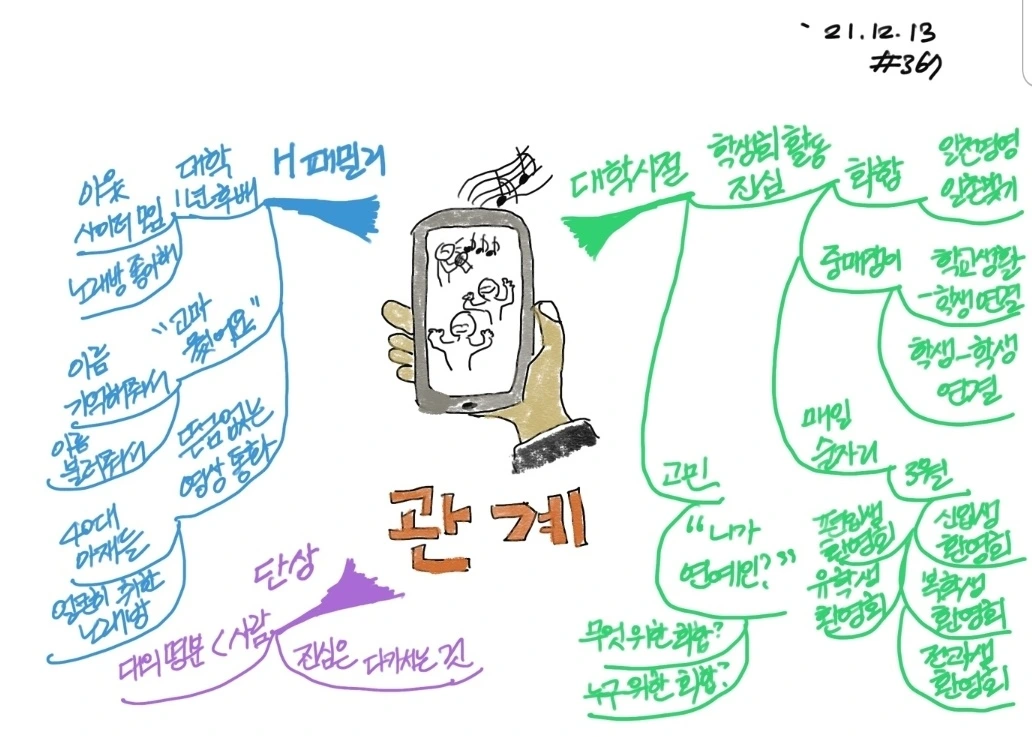 '21.12.13
#367
관계
H 패밀리
대학
11년 후배
아웃
사이더 모임
노래방 좋아해
"고마
웠어요"
이름
기억해줘서
이름
불러줘서
뜬금없는
영상 통화
40대
아재들
얼큰히 취한
노래방
대학시절
학생회 활동
진심
화합
일촌명명
일촌맺기
중매쟁이
학교생활
-학생 연결
학생-학생
연결
매일
술자리
3월
편입생
환영회
유학생
환영회
신입생
환영회
복학생
환영회
전과생
환영회
고민
"니가
연예인?"
무엇 위한 화합?
누구 위한 화합?
단상
대의명분 < 사람
진심은 다가서는 것